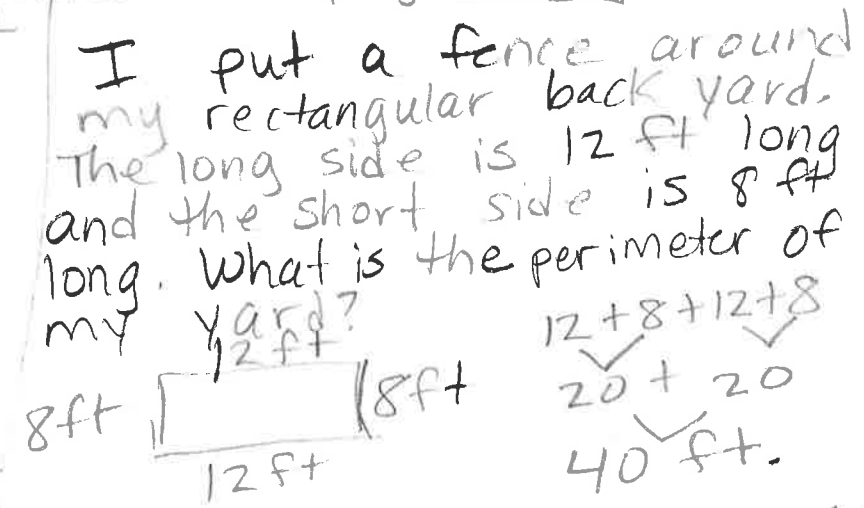 I put a fence around
my rectangular back yard.
The long side is 12 ft long
and the short side is 8 ft
long. What is the perimeter of
my yard?
12 ft
8ft
8ft
12 ft
12+8+12+8
20 + 20
40 ft.